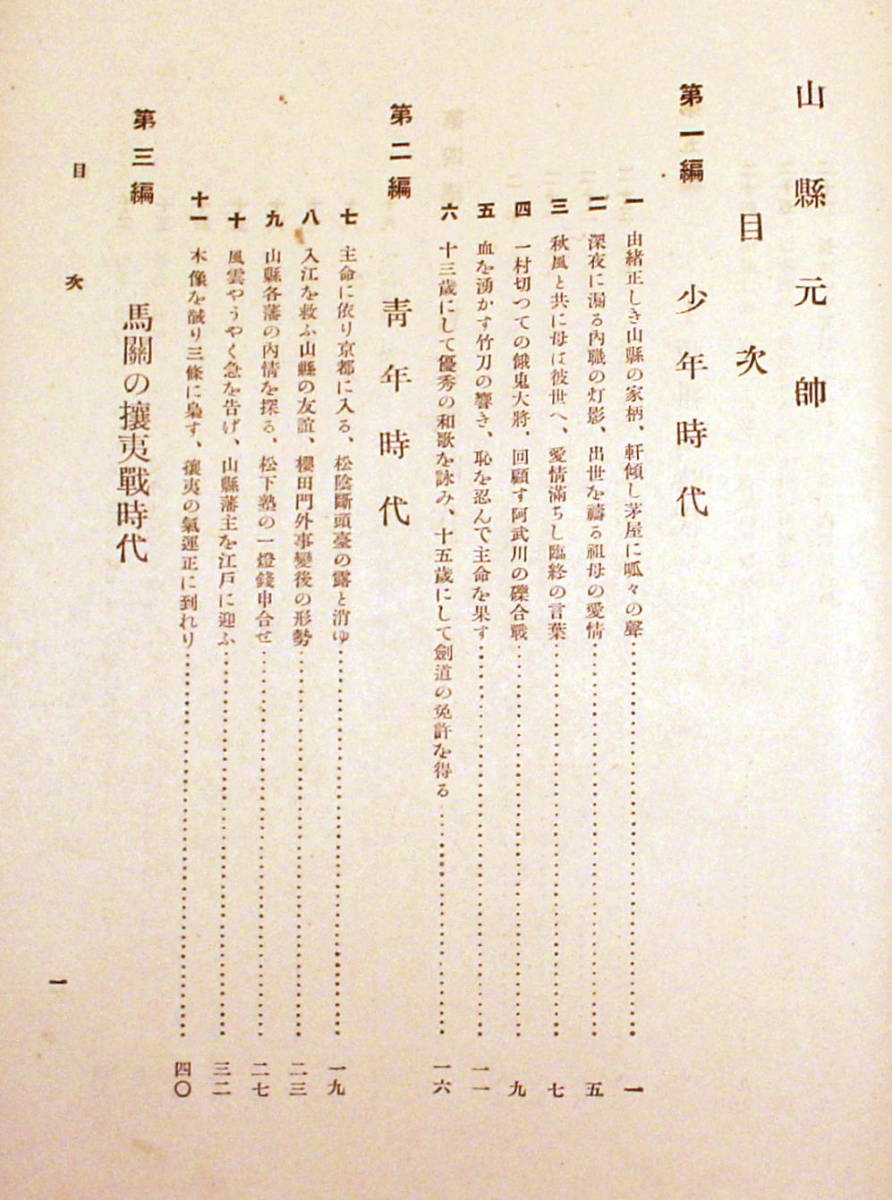 山縣元帥
目次
第一編 少年時代
一 由緒正しき山縣の家柄、軒傾し茅屋に呱々の聲 一
二 深夜に漏る內職の灯影、出世を禱る祖母の愛情 五
三 秋風と共に母は彼世へ、愛情滿ちし臨終の言葉 七
四 一村切つての餓鬼大將、回顧す阿武川の礫合戰 九
五 血を湧かす竹刀の響き、恥を忍んで主命を果す 一一
六 十三歲にして優秀の和歌を詠み、十五歲にして劍道の免許を得る 一六
第二編 靑年時代
七 主命に依り京都に入る、松陰斷頭臺の露と消ゆ 一九
八 入江を救ふ山縣の友誼、櫻田門外事變後の形勢 二三
九 山縣各藩の內情を探る、松下塾の一燈錢申合せ 二七
十 風雲やうやく急を告げ、山縣藩主を江戶に迎ふ 三二
十一 木像を馘り三條に梟す、攘夷の氣運正に到れり 四〇
第三編 馬關の攘夷戰時代
目次
一